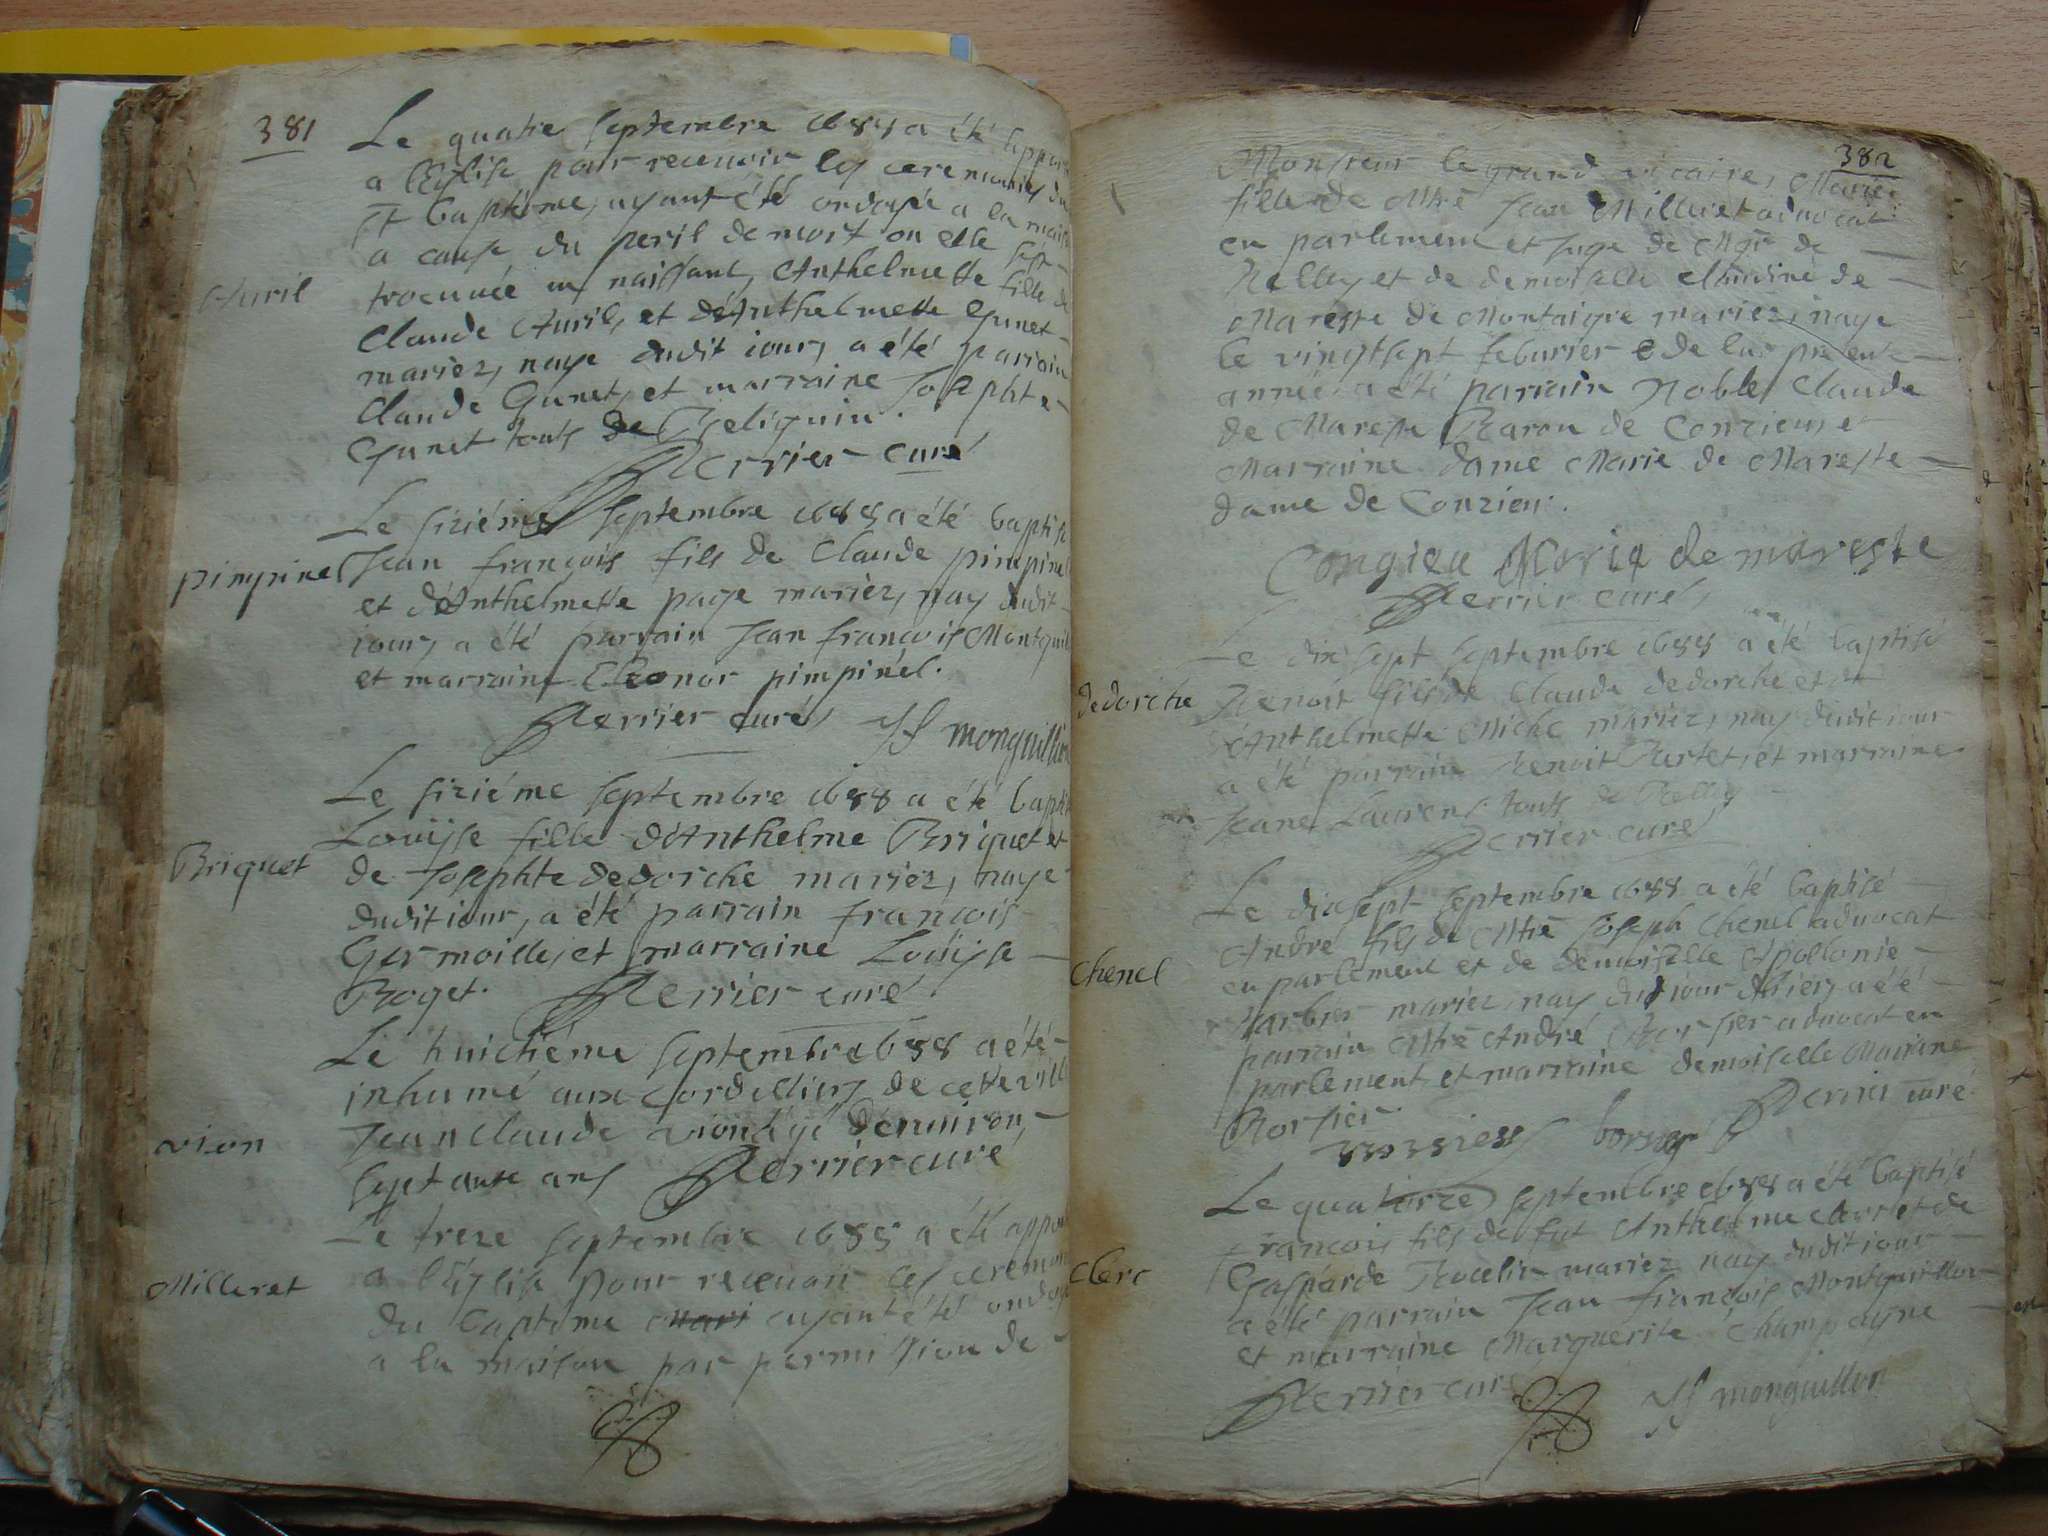 381
Le quatre septembre 1688 a été apporté
a l'Eglise pour recevoir les ceremonies du
st baptême, ayant été ondoyée a la maison
a cause du peril de mort ou elle sest
Avril
trouvée en naissant, Anthelmette fille de
Claude Avril, et d'Anthelmette Gunet
mariez, naye dudit iour, a été parrain
Claude Gunet, et marraine Josephte
Gunet touts de
Perrier curé
Le siziéme septembre 1688 a été baptisé
pimpinel
Jean françois fils de Claude pimpinel
et d'Anthelmette page mariez, nay dudit
iour, a été parrain Jean françois
et marraine Eleonor pimpinel.
Perrier curé
monguillon
Le siziéme septembre 1688 a été baptisé
Louïse fille d'Anthelme Briquet et
Briquet
de Josephte dedorche mariez, naye
dudit iour, a été parrain françois
Germoille, et marraine Louïse
Roget.
Perrier curé
Le huictiéme septembre 1688 a été
inhumé aux Cordelliers de cette ville
vion
Jean Claude vion agé denviron
septante ans
Perrier curé
Le treze septembre 1688 a été apporté
Milleret
a l'Eglise pour recevoir les ceremonies
du baptême Mari ayant été ondoyé
a la maison par permission de
382
Monsieur le grand vicaire, Marie
fille de Mtre Jean Milleret advocat
en parlement et Juge de Mgr de
Belley et de demoiselle Claudine de
Mareste de Montaigre mariez, naye
le vingtsept feburier de la presente
année a été parrain Noble Claude
de Mareste Baron de Conzieu, et
Marraine dame Marie de Mareste
dame de Conzieu.
Congieu Marie de mareste
Perrier curé
Le dix sept septembre 1688 a été baptisé
dedorche
Benoit fils de Claude dedorche et
d'Anthelmette Miche mariez, nay dudit iour
a été parrain Benoit et marraine
Jeane Laurent touts de Belley
Perrier curé
Le dixsept septembre 1688 a été baptisé
André fils de Mtre Joseph Chenel advocat
Chenel
en parlement et de demoiselle Apollonie
Barbier mariez, nay du iour d'hier, a été
parrain Mtre André Borsier advocat en
parlement, et marraine demoiselle
Borsier.
Perrier curé
borsier
Le quatorze septembre 1688 a été baptisé
françois fils de fut Anthelme Clerc et de
Clerc
Gasparde mariez nay dudit iour
a été parrain Jean françois Montguillon
et marraine Marguerite Champagne
Perrier curé
monguillon